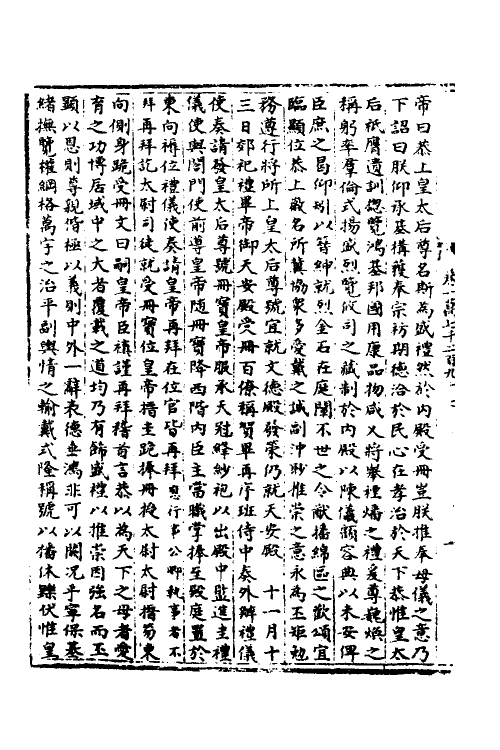 帝曰恭上皇太后尊名斯為盛禮然於內殿受冊豈朕推奉母儀之意乃
下詔曰朕仰承基構獲奉宗祊期德洽於民心在孝治於天下恭惟皇太
后祇膺遺訓總覽鴻基邦國用康品物咸乂將舉禋燔之禮爰尊巍煥之
稱躬率羣倫式揚盛烈覽攸司之議制於內殿以陳儀顧容典以未安俾
臣庶之曷仰矧以等紳就烈金石在庭闡不世之令猷播綿區之歡頌宜
臨顯位恭上殿名所冀協衆多愛戴之誠副沖眇推崇之意永為丕矩勉
務遵行將所上皇太后尊號宜就文德殿發策仍就天安殿 十一月十
三日郊祀禮畢帝御天安殿受冊百僚稱賀畢再序班侍中奏外辦禮儀
使奏請發皇太后尊號冊寶皇帝服承天冠絳紗袍以出殿中監進主禮
儀使與閤門使前導皇帝随冊寶降西階內臣主當職掌捧至殿庭置於
東向褥位禮儀使奏請皇帝再拜在位官皆再拜 應行事公卿執事者不
拜再拜訖太尉司徒就受冊寶位皇帝搢圭跪捧冊授太尉太尉搢笏東
向側身跪受冊文曰嗣皇帝臣禎謹再拜稽首言恭以為天下之母者愛
育之功博居域中之大者覆載之道均乃有飾盛禮以推崇因強名而丕
顯以恩則尊親皆極以義則中外一辭表德垂鴻非可以闕况乎寧保基
緒撫覽權綱格萬宇之治平副輿情之輸戴式隆稱號以播休鑠伏惟皇